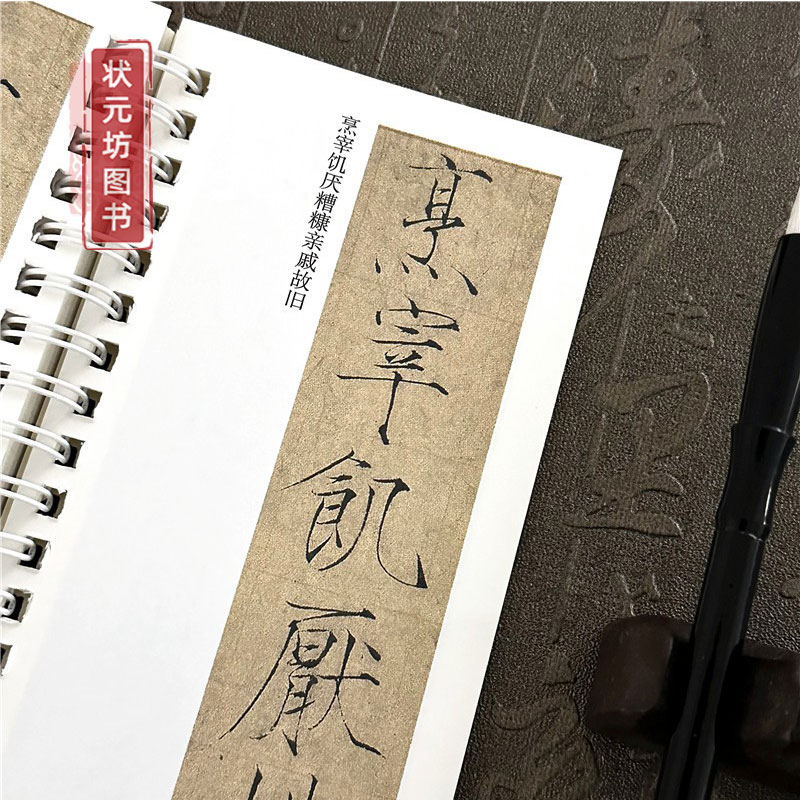 状元坊图书
烹宰饥厌糟糠亲戚故旧
烹宰飢厭